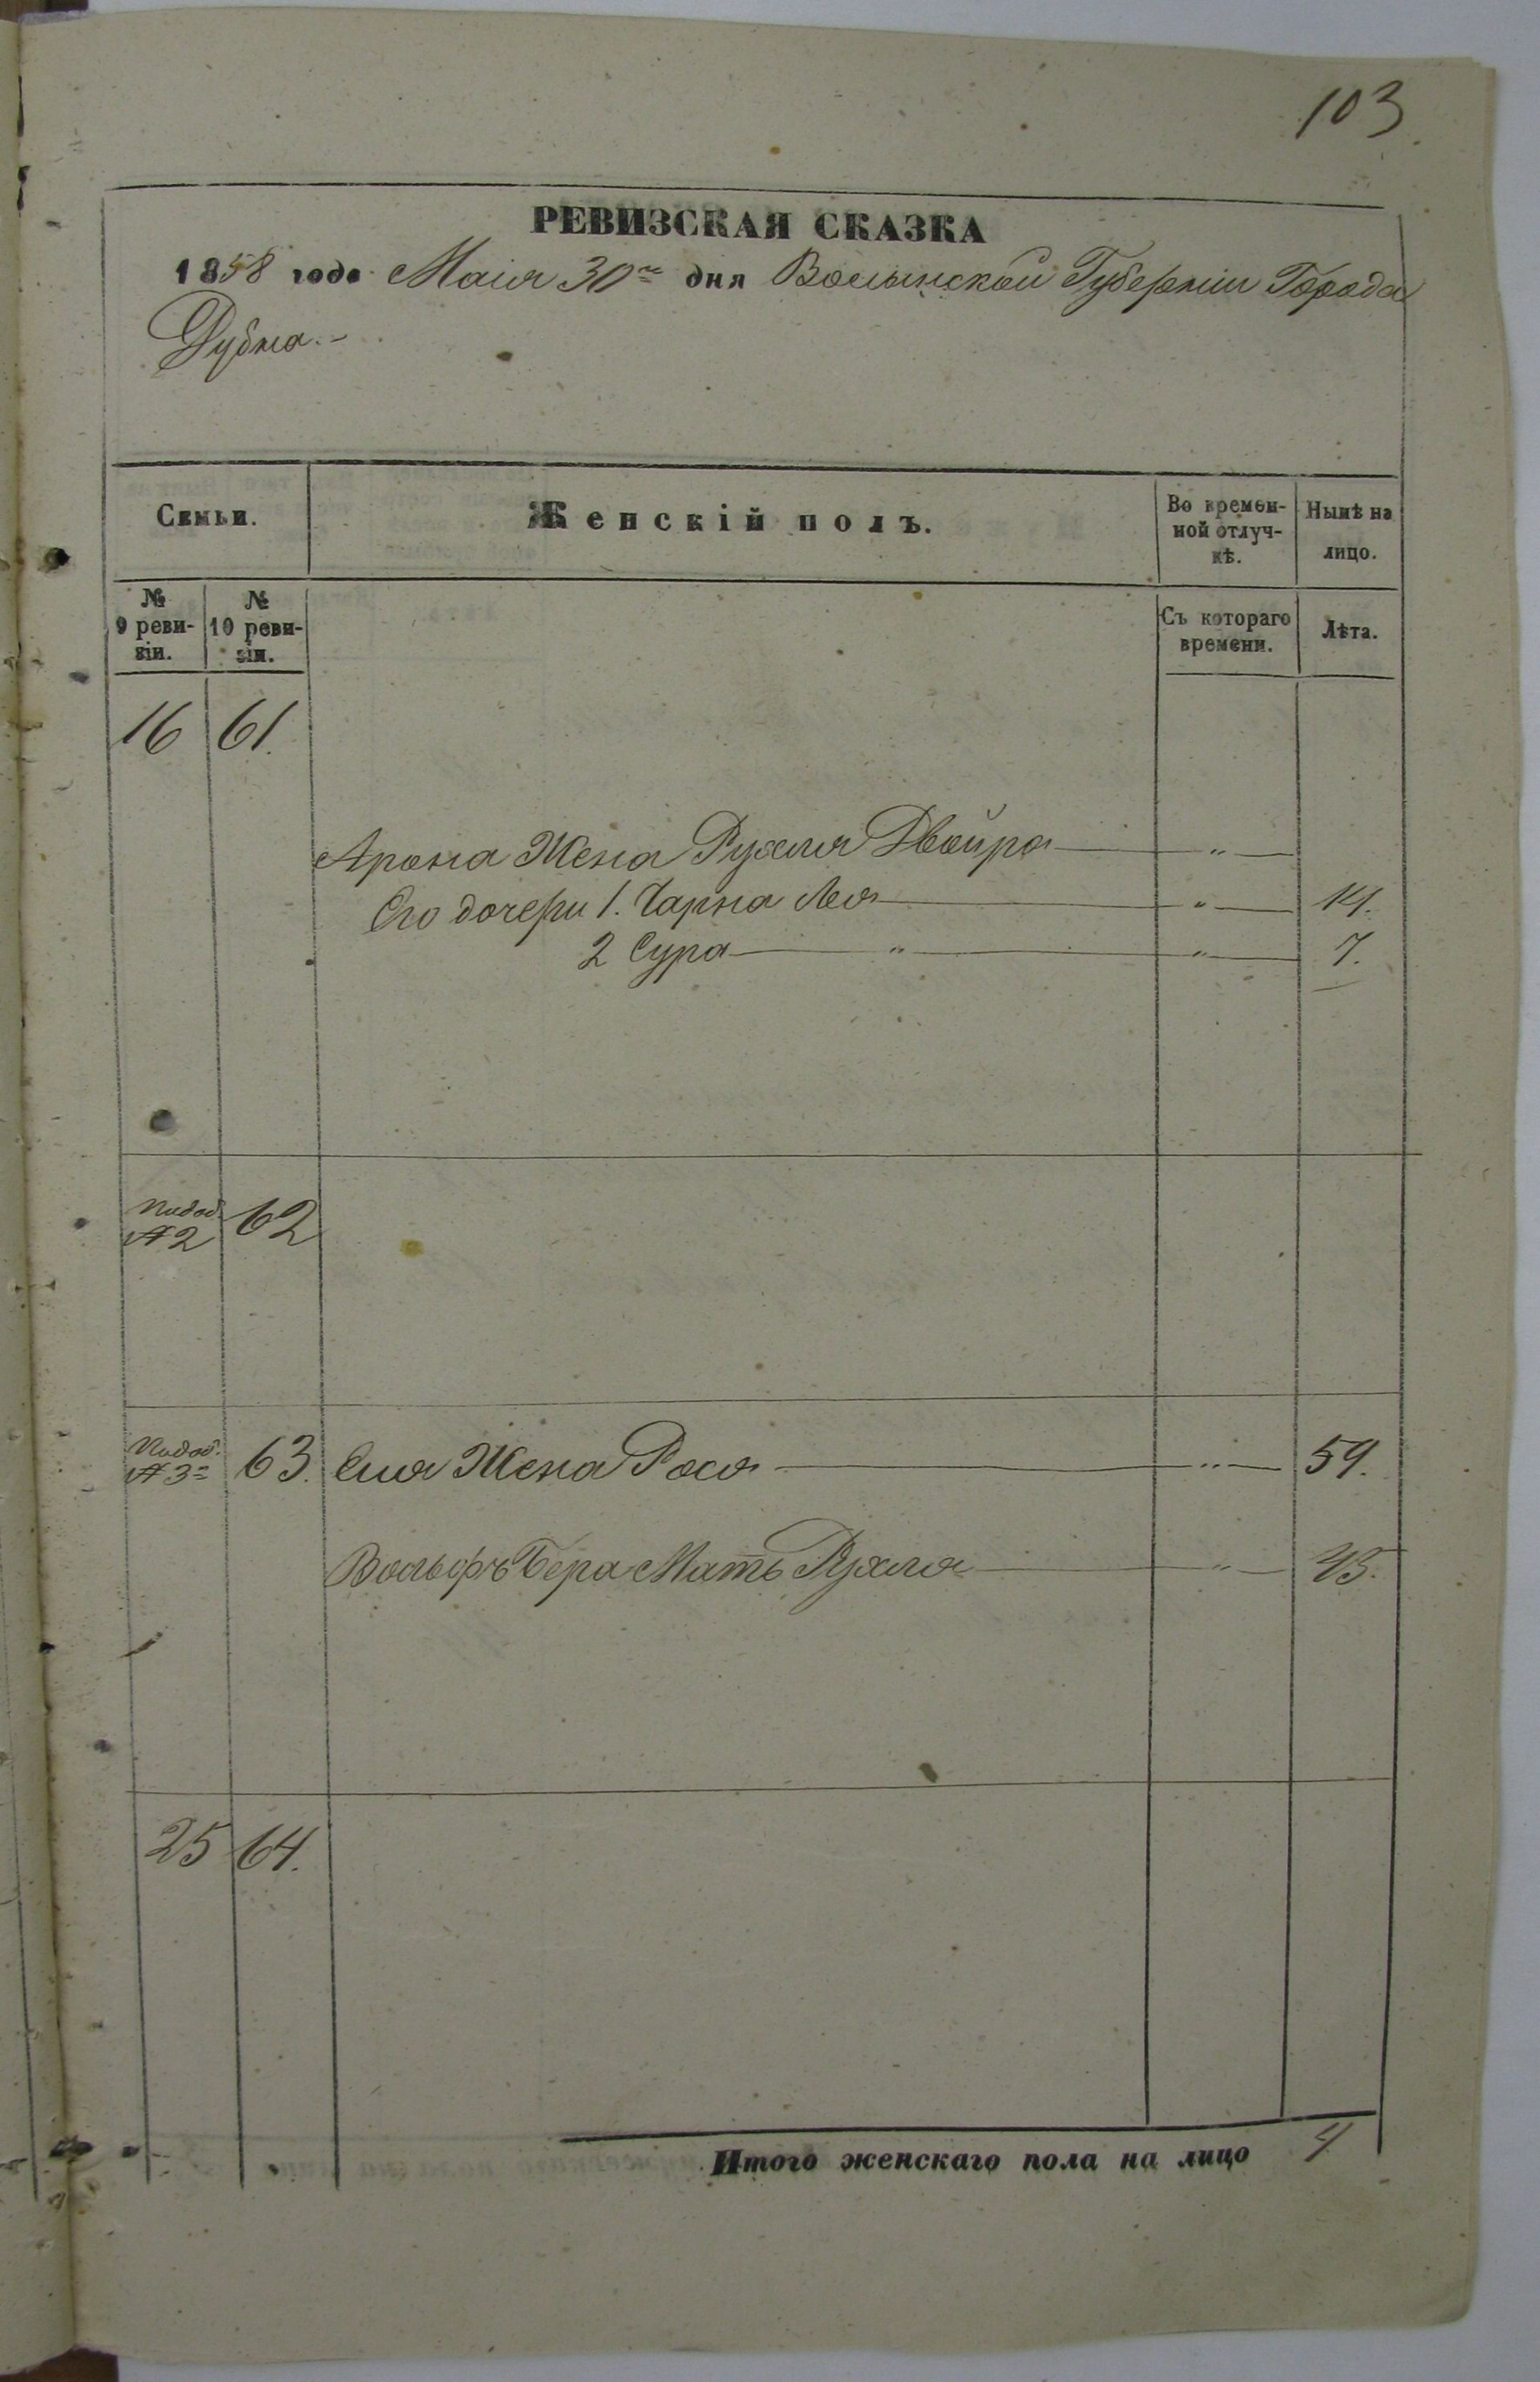 103
РЕВИЗСКАЯ СКАЗКА
1858 года Маія 30го дня Волынской Губерніи Города
Дубна.
Семьи.
Женскій полъ.
Во времен-
ной отлуч-
кѣ.
Нынѣ на
лицо.
№
9 реви-
зіи.
№
10 реви-
зіи.
Съ котораго
времени.
Лѣта.
16 61.
Арона Жена Рухля Двойра "
Его дочери 1. Чарна Лея " 14.
2 Сура " " 7.
№ 2 62
№ 3 63. Еля Жена Рося " 59.
Вольфъ Бера Мать Рухля " 45.
25 64.
Итого женскаго пола на лицо 4